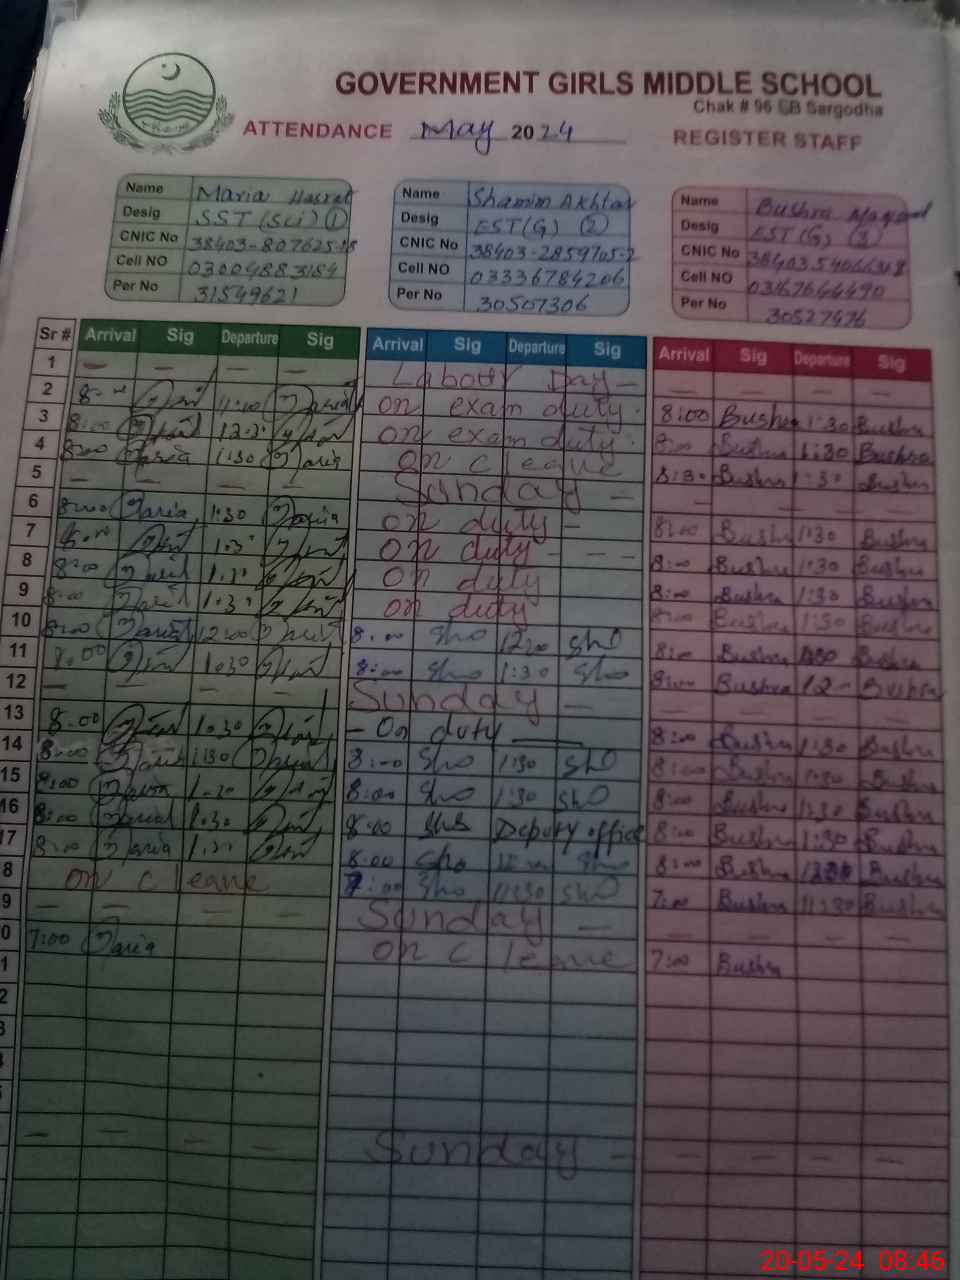 GOVERNMENT GIRLS MIDDLE SCHOOL
Chak # 96 SB Sargodha
ATTENDANCE May 2024 REGISTER STAFF
Name Maria Hasrat
Desig SST (Sci) 1
CNIC No
Cell NO 03004883184
Per No 31549621
Name Shamim Akhtar
Desig EST(G) 2
CNIC No 38403-2859705-2
Cell NO 03336784206
Per No 30507306
Name Bushra
Desig EST(G) 3
CNIC No
Cell NO 03167644490
Per No 30527476
Sr # Arrival Sig Departure Sig Arrival Sig Departure Sig Arrival Sig Departure Sig
1 — — — — Labour Day — — — — —
2 8:00 11:00 Maria on exam duty. 8:00 Bushra 1:30 Bushra
3 8:00 on exam duty. 8:00 Bushra 1:30 Bushra
4 8:00 Maria 1:30 Maria on c leave 8:30 Bushra 1:30 Bushra
5 — — — — Sunday — — — — —
6 8:00 Maria 1:30 Maria on duty — 8:00 Bushra 1:30 Bushra
7 8:00 1:30 on duty - - - 8:00 Bushra 1:30 Bushra
8 8:00 on duty 8:00 Bushra 1:30 Bushra
9 8:00 1:30 on duty 8:00 Bushra 1:30 Bushra
10 8:00 Maria 12:00 8:00 Sho 12:00 Sho 8:00 Bushra Bushra
11 8:00 1:30 8:00 Sho 1:30 Sho 8:00 Bushra 12 Bushra
12 — — — — Sunday — — — — —
13 8:00 1:30 - On duty 8:00 Bushra 1:30 Bushra
14 8:00 Maria 1:30 8:00 Sho 1:30 Sho 8:00 Bushra 1:30 Bushra
15 8:00 Maria 1:30 8:00 Sho 1:30 Sho 8:00 Bushra 1:30 Bushra
16 8:00 Maria 1:30 8:00 Sho Deputy office 8:00 Bushra 1:30 Bushra
17 8:00 Maria 8:00 Sho Sho 8:00 Bushra Bushra
8 on c leave 7:00 Sho 11:30 Sho 7:00 Bushra 11:30 Bushra
9 — — — — Sunday — — — — —
0 7:00 Maria on c leave 7:00 Bushra
1
2
3
— — — — Sunday — — — — —
20-05-24 08:46